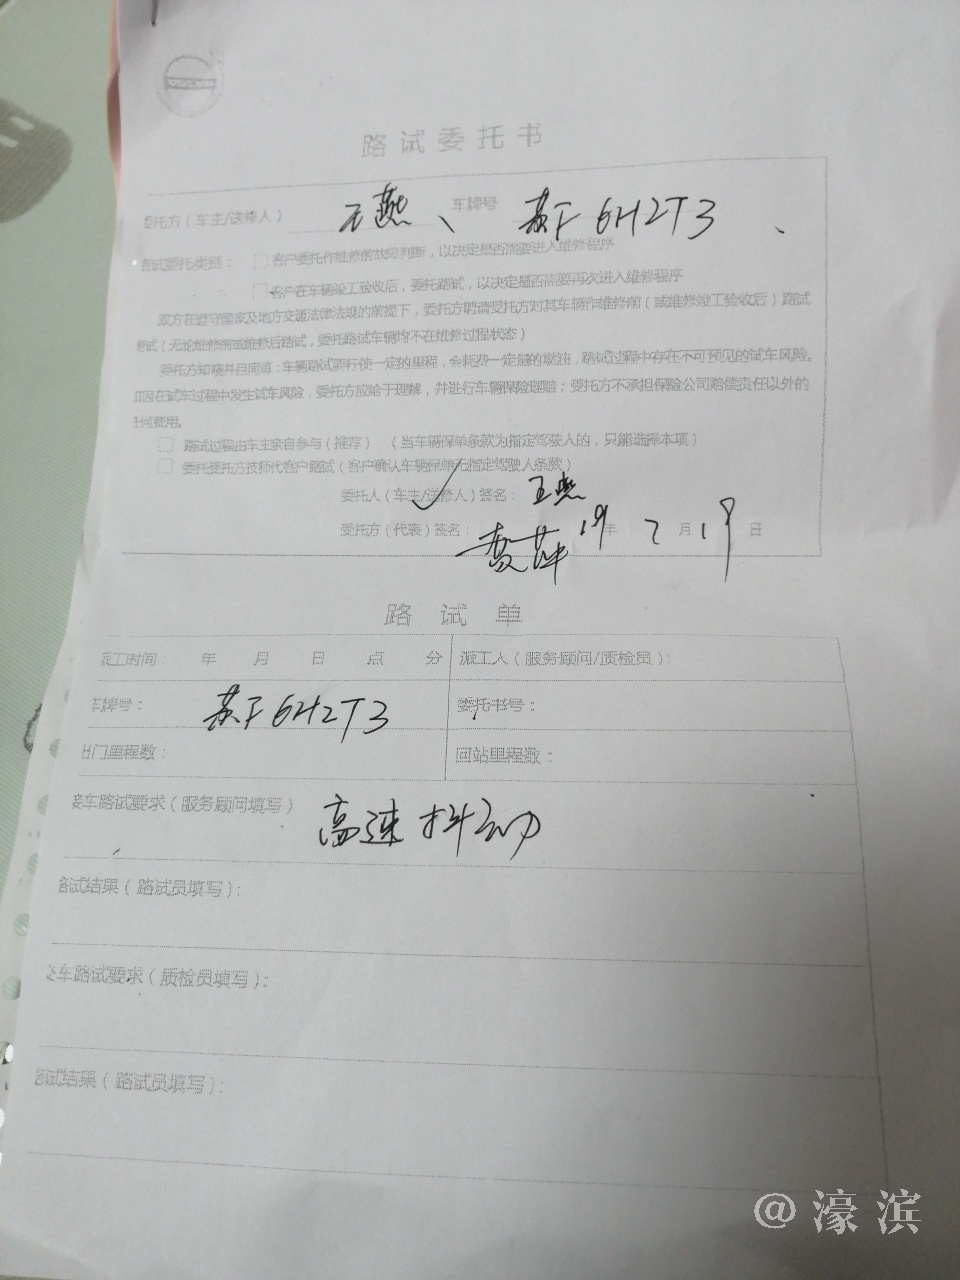 VOLVO
路试委托书
委托方（车主/送修人） 王燕、 车牌号 苏F 6H2T3、
路试委托类别： 客户委托作维修前故障判断，以决定是否需要进入维修程序
客户在车辆竣工验收后，委托路试，以决定是否需要再次进入维修程序
双方在遵守国家及地方交通法律法规的前提下，委托方聘请受托方对其车辆作维修前（或维修竣工验收后）路试
测试（无论维修前或维修后路试，委托路试车辆均不在维修过程状态）
委托方知晓并且同意：车辆路试要行使一定的里程，会耗费一定量的燃油，路试过程中存在不可预见的试车风险。
如因在试车过程中发生试车风险，委托方应给于理解，并进行车辆保险理赔；受托方不承担保险公司赔偿责任以外的
任何费用。
路试过程由车主亲自参与（推荐）（当车辆保单条款为指定驾驶人的，只能选择本项）
委托受托方技师代客户路试（客户确认车辆保单无指定驾驶人条款）
委托人（车主/送修人）签名： 王燕
受托方（代表）签名： 19年 7月19日
路试单
派工时间： 年 月 日 点 分 派工人（服务顾问/质检员）：
车牌号： 苏F 6H2T3 委托书号：
出门里程数： 回站里程数：
接车路试要求（服务顾问填写） 高速抖动
路试结果（路试员填写）：
交车路试要求（质检员填写）：
路试结果（路试员填写）：
@濠滨